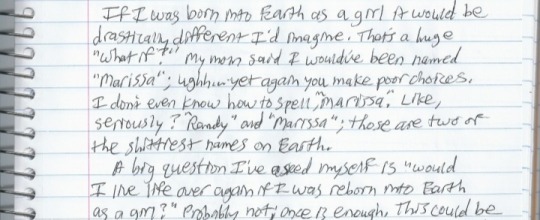 If I was born into Earth as a girl it would be
drastically different I'd imagine. Thats a huge
"what if?" My mom said I would've been named
"Marissa"; ughh... yet again you make poor choices.
I don't even know how to spell, "Marissa." Like,
seriously? "Randy" and "Marissa"; those are two of
the shittiest names on Earth.
A big question I've asked myself is "would
I live life over again if I was reborn into Earth
as a girl?" Probably not; once is enough. This could be